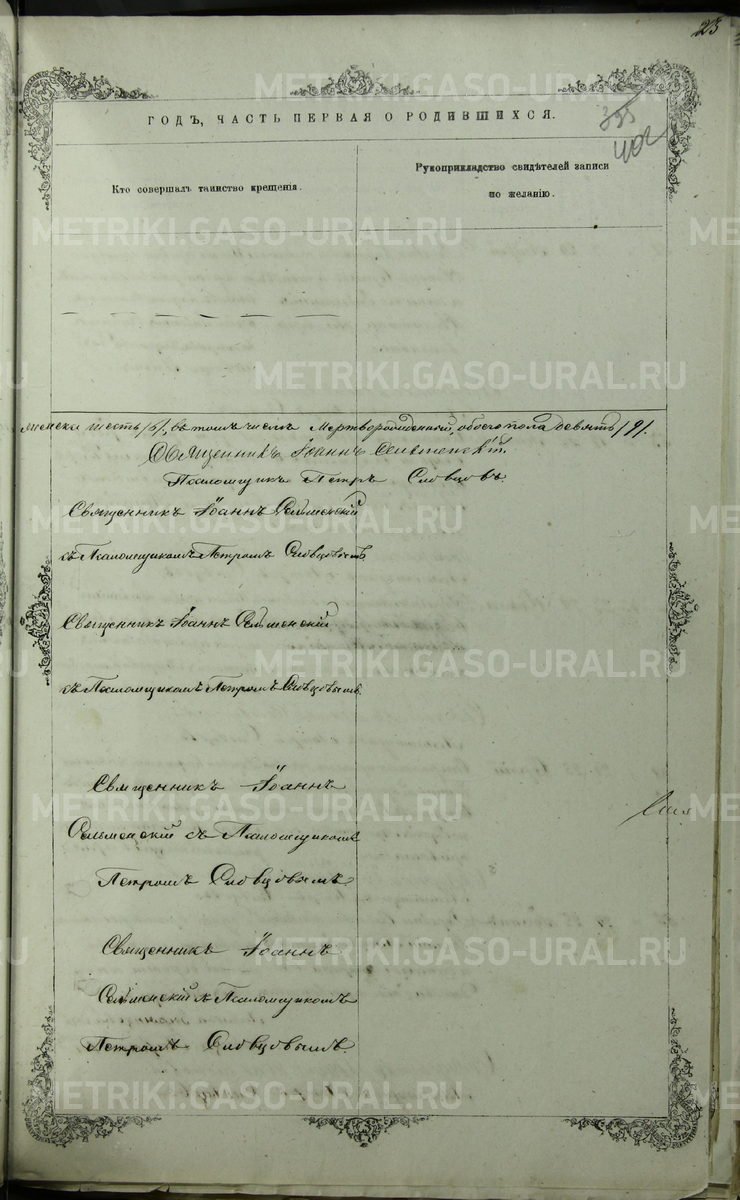 23
ГОДЪ, ЧАСТЬ ПЕРВАЯ О РОДИВШИХСЯ.
395
402
Кто совершалъ таинство крещенія.
Рукоприкладство свидѣтелей записи
по желанію.
женска шесть /6/, въ томъ числѣ мертворожденный, обоего пола девять /9/.
Священникъ Іоаннъ Сельменскій.
Псаломщикъ Петръ Словцовъ.
Священникъ Іоаннъ Сельменскій
съ Псаломщикомъ Петромъ Словцовымъ
Священникъ Іоаннъ Сельменскій
съ Псаломщикомъ Петромъ Словцовымъ.
Священникъ Іоаннъ
Сельменскій съ Псаломщикомъ
Петромъ Словцовымъ
Священникъ Іоаннъ
Сельменскій съ Псаломщикомъ
Петромъ Словцовымъ.
METRIKI.GASO-URAL.RU